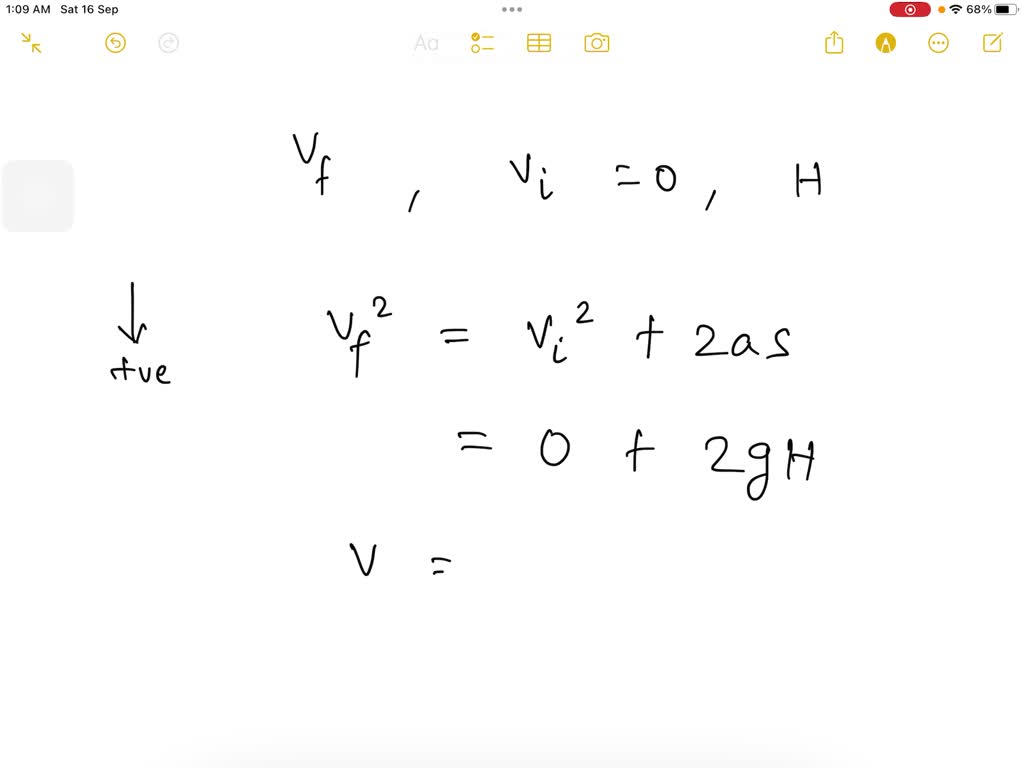 1:09 AM Sat 16 Sep 68%
Aa
Vf , Vi = 0 , H
↓ Vf² = Vi² + 2as
+ve
= 0 + 2gH
V =